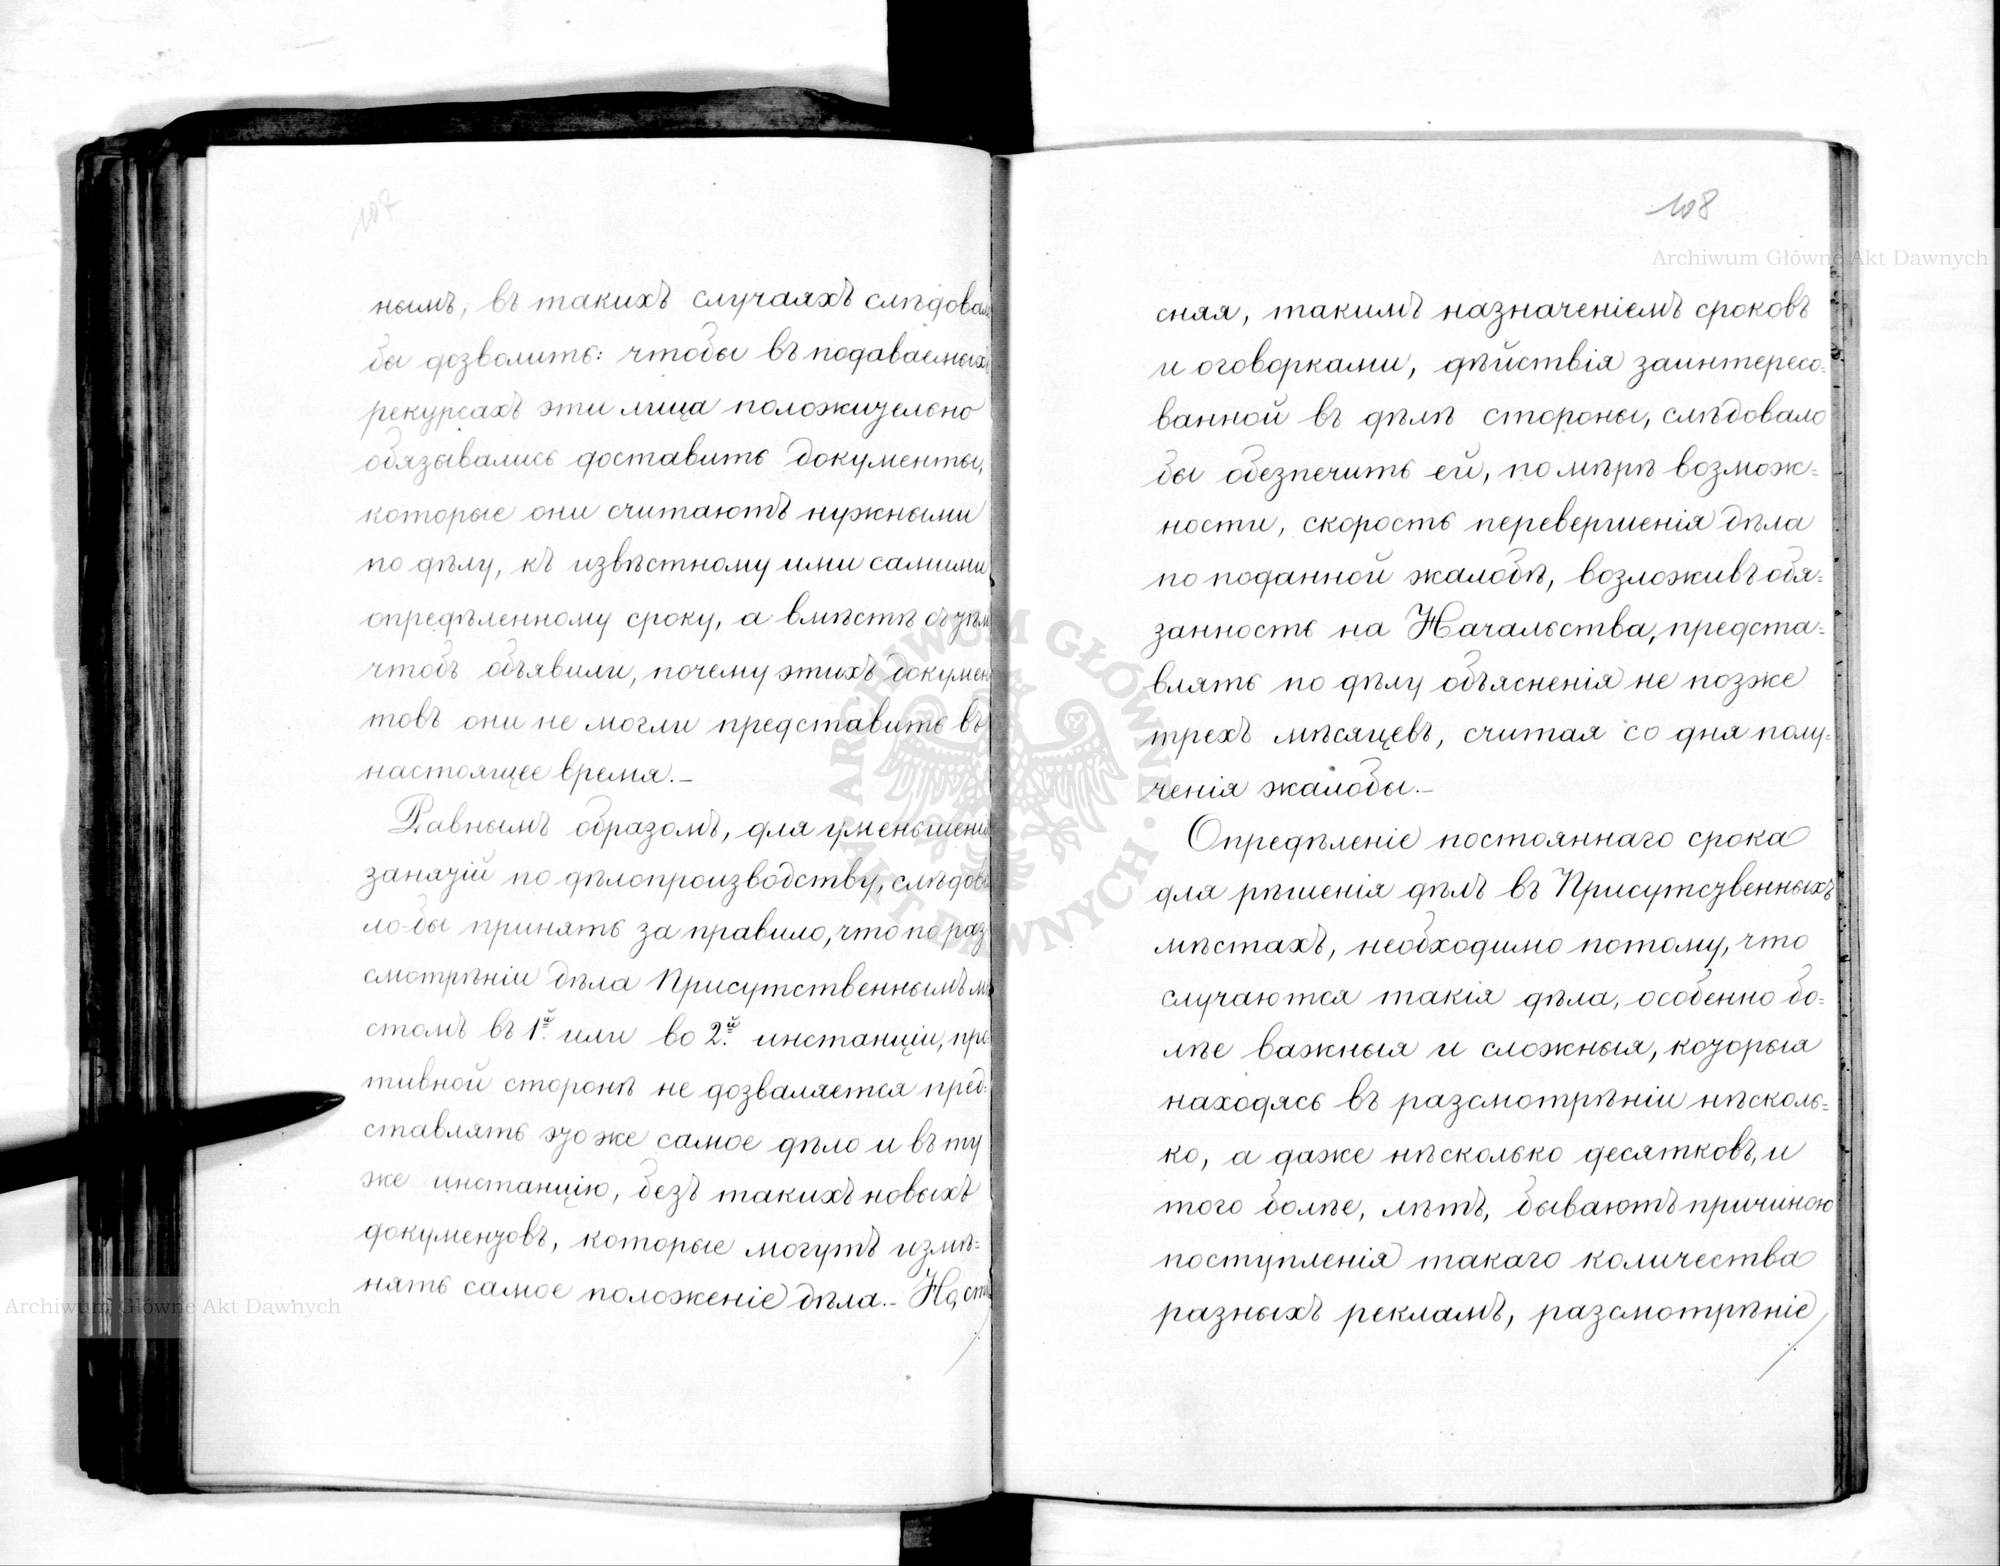 107
нымъ, въ такихъ случаяхъ слѣдовал
бы дозволить: чтобы въ подаваемыхъ
рекурсахъ эти лица положительно
обязывались доставить документы,
которые они считаютъ нужными
по дѣлу, къ извѣстному ими самими
опредѣленному сроку, а вмѣстѣ съ тѣм
чтобъ объявили, почему этихъ докумен
товъ они не могли представить въ
настоящее время.–
Равнымъ образомъ, для уменьшені
занятій по дѣлопроизводству, слѣдов
ло-бы принять за правило, что по раз
смотрѣніи дѣла Присутственнымъ мѣ
стомъ въ 1й или во 2й инстанціи, про
тивной сторонѣ не дозваляется пред=
ставлять то же самое дѣло и въ ту
же инстанцію, безъ такихъ новыхъ
документовъ, которые могутъ измѣ=
нять самое положеніе дѣла.– Но, стѣ
108
сняя, такимъ назначеніемъ сроковъ
и оговорками, дѣйствія заинтересо=
ванной въ дѣлѣ стороны, слѣдовало
бы обезпечить ей, по мѣрѣ возмож=
ности, скорость перевершенія дѣла
по поданной жалобѣ, возложивъ обя=
занность на Начальства, предста=
влять по дѣлу объясненія не позже
трехъ мѣсяцевъ, считая со дня полу=
ченія жалобы.–
Опредѣленіе постояннаго срока
для рѣшенія дѣлъ въ Присутственныхъ
мѣстахъ, необходимо потому, что
случаются такія дѣла, особенно бо=
лѣе важныя и сложныя, которыя
находясь въ разсмотрѣніи нѣсколь=
ко, а даже нѣсколько десятковъ, и
того болѣе, лѣтъ, бываютъ причиною
поступленія такаго количества
разныхъ рекламъ, разсмотрѣніе
Archiwum Główne Akt Dawnych
Archiwum Główne Akt Dawnych
ARCHIWUM GŁÓWNE AKT DAWNYCH